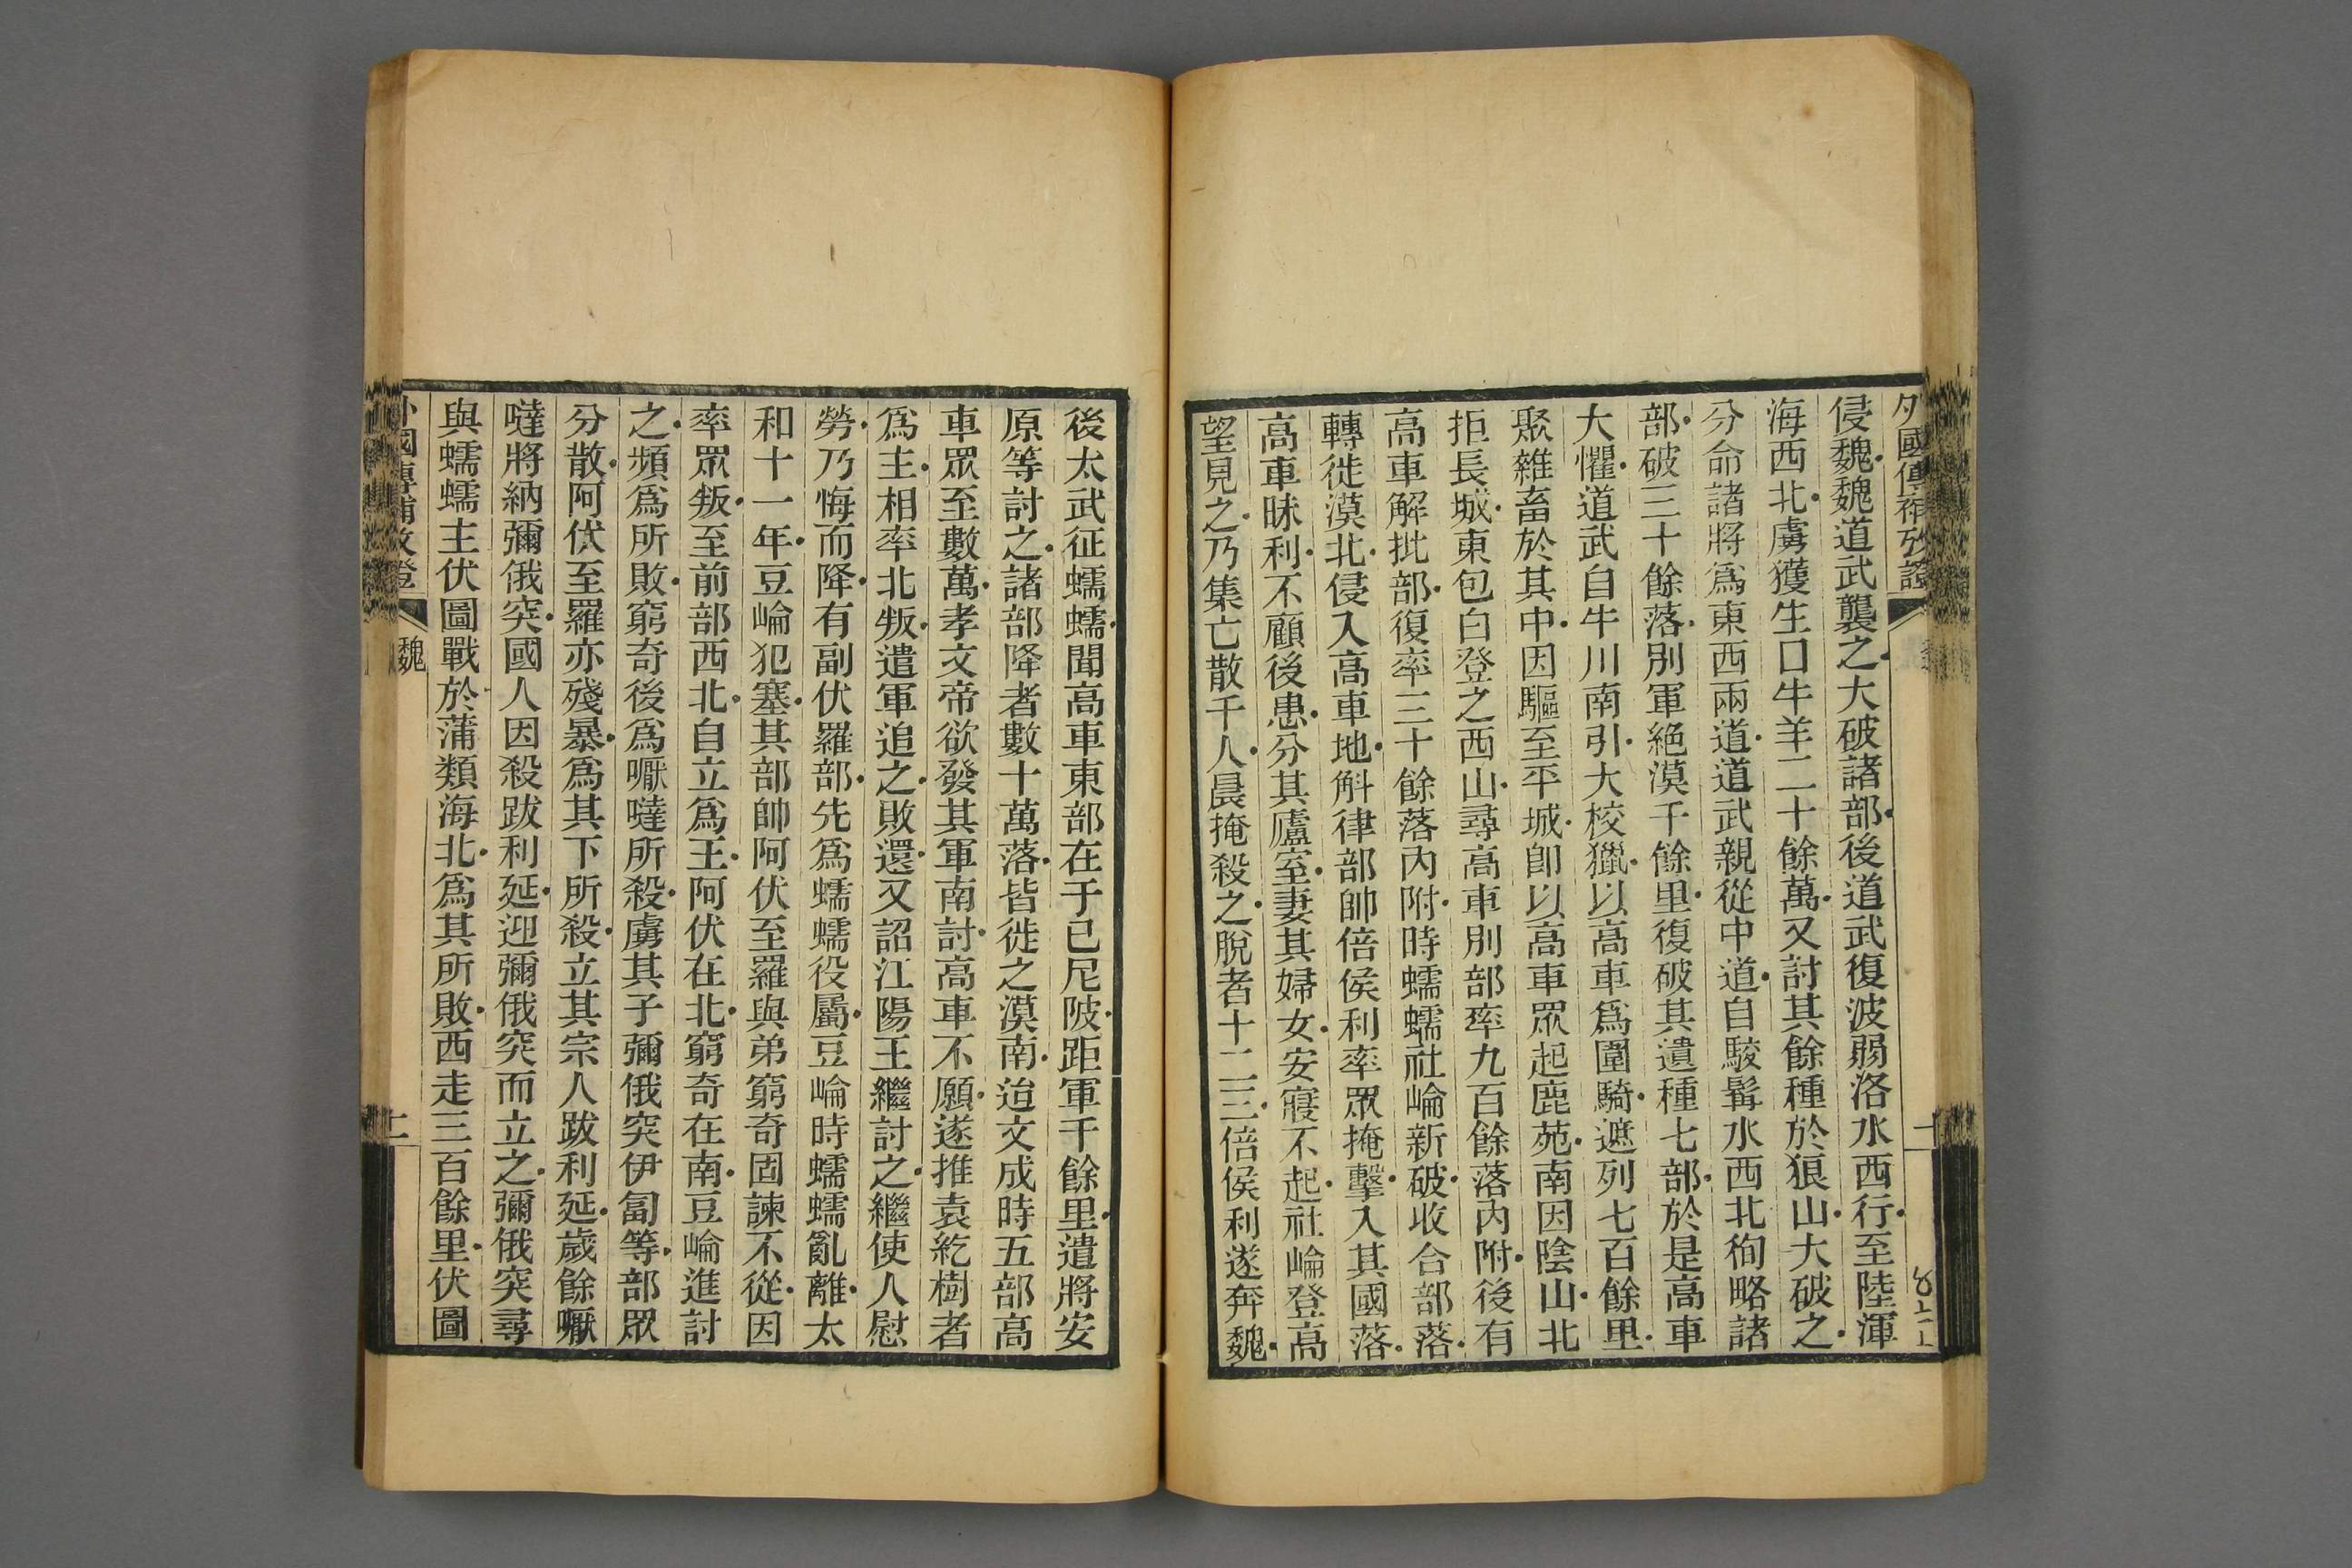 外國傳補攷證
侵魏魏道武襲之大破諸部後道武復波弱洛水西行至陸渾
海西北虜獲生口牛羊二十餘萬又討其餘種於狼山大破之
分命諸將爲東西兩道道武親從中道自駮髯水西北徇略諸
部破三十餘落別軍絕漠千餘里復破其遺種七部於是高車
大懼道武自牛川南引大校獵以高車爲圍騎遮列七百餘里
聚雜畜於其中因驅至平城卽以高車眾起鹿苑南因陰山北
拒長城東包白登之西山尋高車別部率九百餘落內附後有
高車解批部復率三十餘落內附時蠕蠕社崘新破收合部落
轉徙漠北侵入高車地斛律部帥倍侯利率眾掩擊入其國落
高車昧利不顧後患分其廬室妻其婦女安寢不起社崘登高
望見之乃集亡散千人晨掩殺之脫者十二三倍侯利遂奔魏
後太武征蠕蠕聞高車東部在于已尼陂距軍千餘里遣將安
原等討之諸部降者數十萬落皆徙之漠南迨文成時五部高
車眾至數萬孝文帝欲發其軍南討高車不願遂推袁紇樹者
爲主相率北叛遣軍追之敗還又詔江陽王繼討之繼使人慰
勞乃悔而降有副伏羅部先爲蠕蠕役屬豆崘時蠕蠕亂離太
和十一年豆崘犯塞其部帥阿伏至羅與弟窮奇固諫不從因
率眾叛至前部西北自立爲王阿伏在北窮奇在南豆崘進討
之頻爲所敗窮奇後爲嚈噠所殺虜其子彌俄突伊匐等部眾
分散阿伏至羅亦殘暴爲其下所殺立其宗人跋利延歲餘嚈
噠將納彌俄突國人因殺跋利延迎彌俄突而立之彌俄突尋
與蠕蠕主伏圖戰於蒲類海北爲其所敗西走三百餘里伏圖
外國傳補攷證 魏